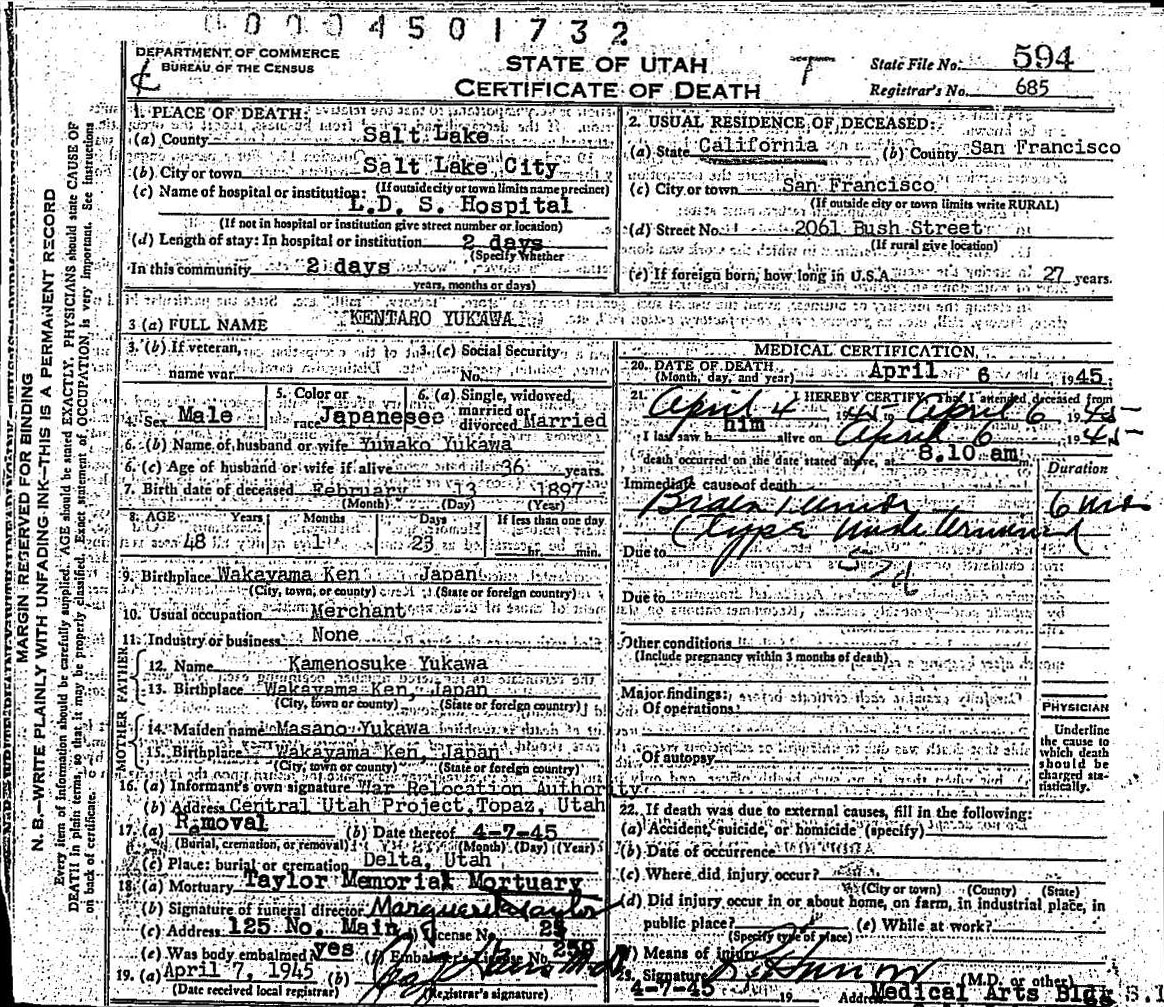 00004501732
DEPARTMENT OF COMMERCE
BUREAU OF THE CENSUS
STATE OF UTAH
CERTIFICATE OF DEATH
State File No. 594
Registrar's No. 685
MARGIN RESERVED FOR BINDING
N.B.—WRITE PLAINLY WITH UNFADING INK—THIS IS A PERMANENT RECORD
Every item of information should be carefully supplied. AGE should be stated EXACTLY. PHYSICIANS should state CAUSE OF
DEATH in plain terms, so that it may be properly classified. Exact statement of OCCUPATION is very important. See instructions
on back of certificate.
1. PLACE OF DEATH:
(a) County Salt Lake
(b) City or town Salt Lake City
(If outside city or town limits name precinct)
(c) Name of hospital or institution:
L.D.S. Hospital
(If not in hospital or institution give street number or location)
(d) Length of stay: In hospital or institution 2 days
(Specify whether
In this community 2 days
years, months or days)
2. USUAL RESIDENCE OF DECEASED:
(a) State California (b) County San Francisco
(c) City or town San Francisco
(If outside city or town limits write RURAL)
(d) Street No. 2061 Bush Street
(If rural give location)
(e) If foreign born, how long in U.S.A. 27 years.
3 (a) FULL NAME KENTARO YUKAWA
3. (b) If veteran, name war
3. (c) Social Security No.
4. Sex Male
5. Color or race Japanese
6. (a) Single, widowed, married or divorced Married
6. (b) Name of husband or wife Yuwako Yukawa
6. (c) Age of husband or wife if alive 36 years.
7. Birth date of deceased February 13 1897
(Month) (Day) (Year)
8. AGE Years Months Days If less than one day
48 1 23 hr. min.
9. Birthplace Wakayama Ken Japan
(City, town, or county) (State or foreign country)
10. Usual occupation Merchant
11. Industry or business None
FATHER
12. Name Kamenosuke Yukawa
13. Birthplace Wakayama Ken, Japan
(City, town or county) (State or foreign country)
MOTHER
14. Maiden name Masano Yukawa
15. Birthplace Wakayama Ken, Japan
(City, town or county) (State or foreign country)
16. (a) Informant's own signature War Relocation Authority
(b) Address Central Utah Project, Topaz, Utah
17. (a) Removal (b) Date thereof 4-7-45
(Burial, cremation, or removal) (Month) (Day) (Year)
(c) Place: burial or cremation Delta, Utah
18. (a) Mortuary Taylor Memorial Mortuary
(b) Signature of funeral director Marguerite Taylor
(c) Address 125 No. Main License No.
(e) Was body embalmed yes (f) Embalmer's License No.
19. (a) April 7, 1945 (b)
(Date received local registrar) (Registrar's signature)
MEDICAL CERTIFICATION
20. DATE OF DEATH
(Month, day, and year) April 6 1945
21. I HEREBY CERTIFY That I attended deceased from
April 4 1945 to April 6 1945
I last saw him alive on April 6 1945
death occurred on the date stated above, at 8.10 am m.
Duration
Immediate cause of death
Brain tumor 6 mos
(type undetermined
Due to
Due to
Other conditions
(Include pregnancy within 3 months of death)
Major findings:
Of operations
Of autopsy
PHYSICIAN
Underline
the cause to
which death
should be
charged sta-
tistically.
22. If death was due to external causes, fill in the following:
(a) Accident, suicide, or homicide (specify)
(b) Date of occurrence
(c) Where did injury occur?
(City or town) (County) (State)
(d) Did injury occur in or about home, on farm, in industrial place, in
public place? (e) While at work?
(Specify type of place)
(f) Means of injury
23. Signature (M.D. or other)
4-7-45 19 Address Medical Arts Bldg S.L